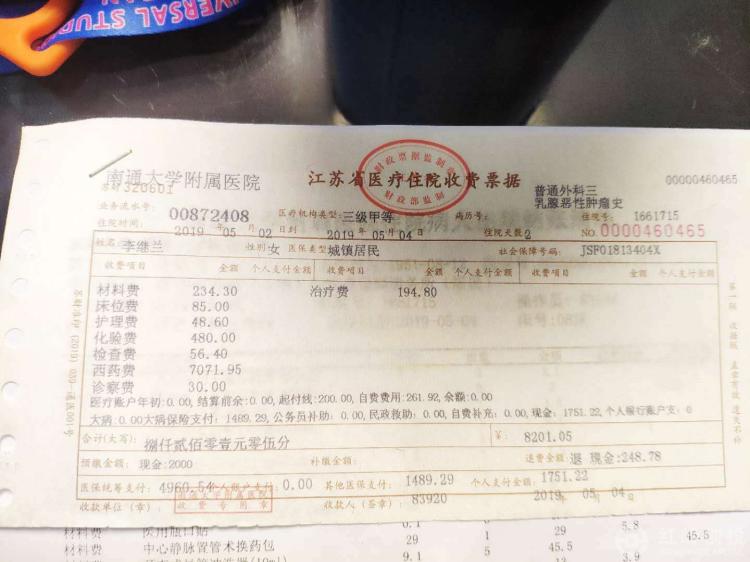 UNIVERSAL STUD
南通大学附属医院
江苏省医疗住院收费票据
财政票据监制
财政部监制
苏财320601
普通外科三
乳腺恶性肿瘤史
00000460465
业务流水号: 00872408 医疗机构类型: 三级甲等 病历号: 住院号: 1661715
住院时间: 2019 年 05 月 02 日到 2019 年 05 月 04 日 住院天数2 NO.0000460465
姓名 李继兰 性别 女 医保类型 城镇居民 社会保障号码: JSF01813404X
收费项目 金额 个人支付金额 收费项目 金额 个人支付金额 收费项目 金额 个人支付金额
材料费 234.30 治疗费 194.80
床位费 85.00
护理费 48.60
化验费 480.00
检查费 56.40
西药费 7071.95
诊察费 30.00
医疗账户年初:0.00, 结算前余:0.00, 起付线:200.00, 自费费用:261.92, 余额:0.00
大病:0.00大病保险支付: 1489.29, 公务员补助: 0.00, 民政救助: 0.00, 自费补充: 0.00, 现金: 1751.22, 个人银行账户支: 0
合计(大写): 捌仟贰佰零壹元零伍分 ¥: 8201.05
预缴金额: 现金:2000 补缴金额: 退费金额: 退 现金:248.78
医保统筹支付: 4960.54 个人账户支付: 0.00 其他医保支付: 1489.29 个人支付金额: 1751.22
收款单位(章): 收款人(签章): 83920 2019 年 05 月 04 日
南通大学附属医院
收费专用章
第一联 收据联 盖章有效 遗失不补
材料费 医用瓶口贴 0.1 1 29 5.8
材料费 中心静脉置管术换药包 29 1 45.5 45.5
材料费 9.1 5 13 3.9